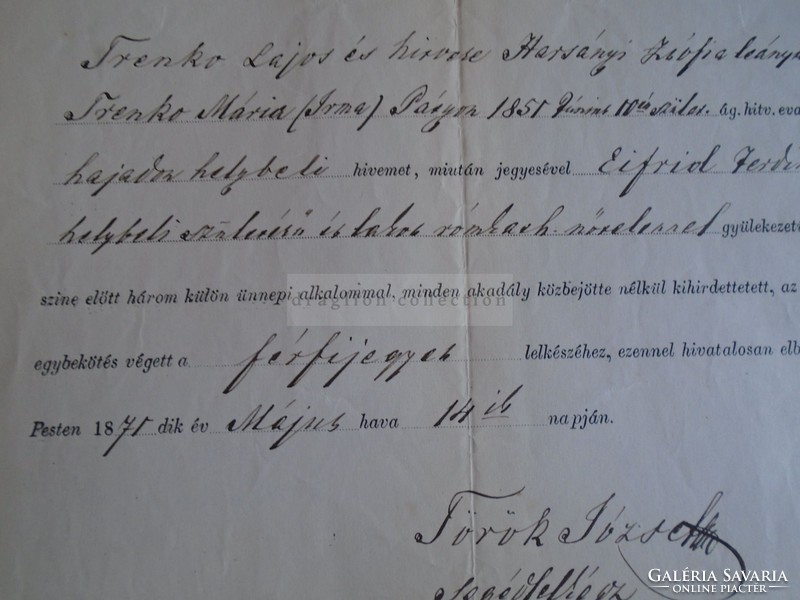 Trenko Lajos és hitvese Harsányi Zsófia leánya
Trenko Mária (Irma) 1851 Június 10én szület. ág. hitv. eva
hajadon helybeli hivemet, miután jegyesével Eifrid Ferdi
helybeli születésű és lakos rom.kath. nőtelennel gyülekezet
szine előtt három külön ünnepi alkalommal, minden akadály közbejötte nélkül kihirdettetett, az
dragfron conection
egybekötés végett a férfijegyes lelkészéhez, ezennel hivatalosan elb
Pesten 1871 dik év Május hava 14ik napján.
Török József
Segédlelkész
GALÉRIA SAVARIA
ONLINE PIACTÉR